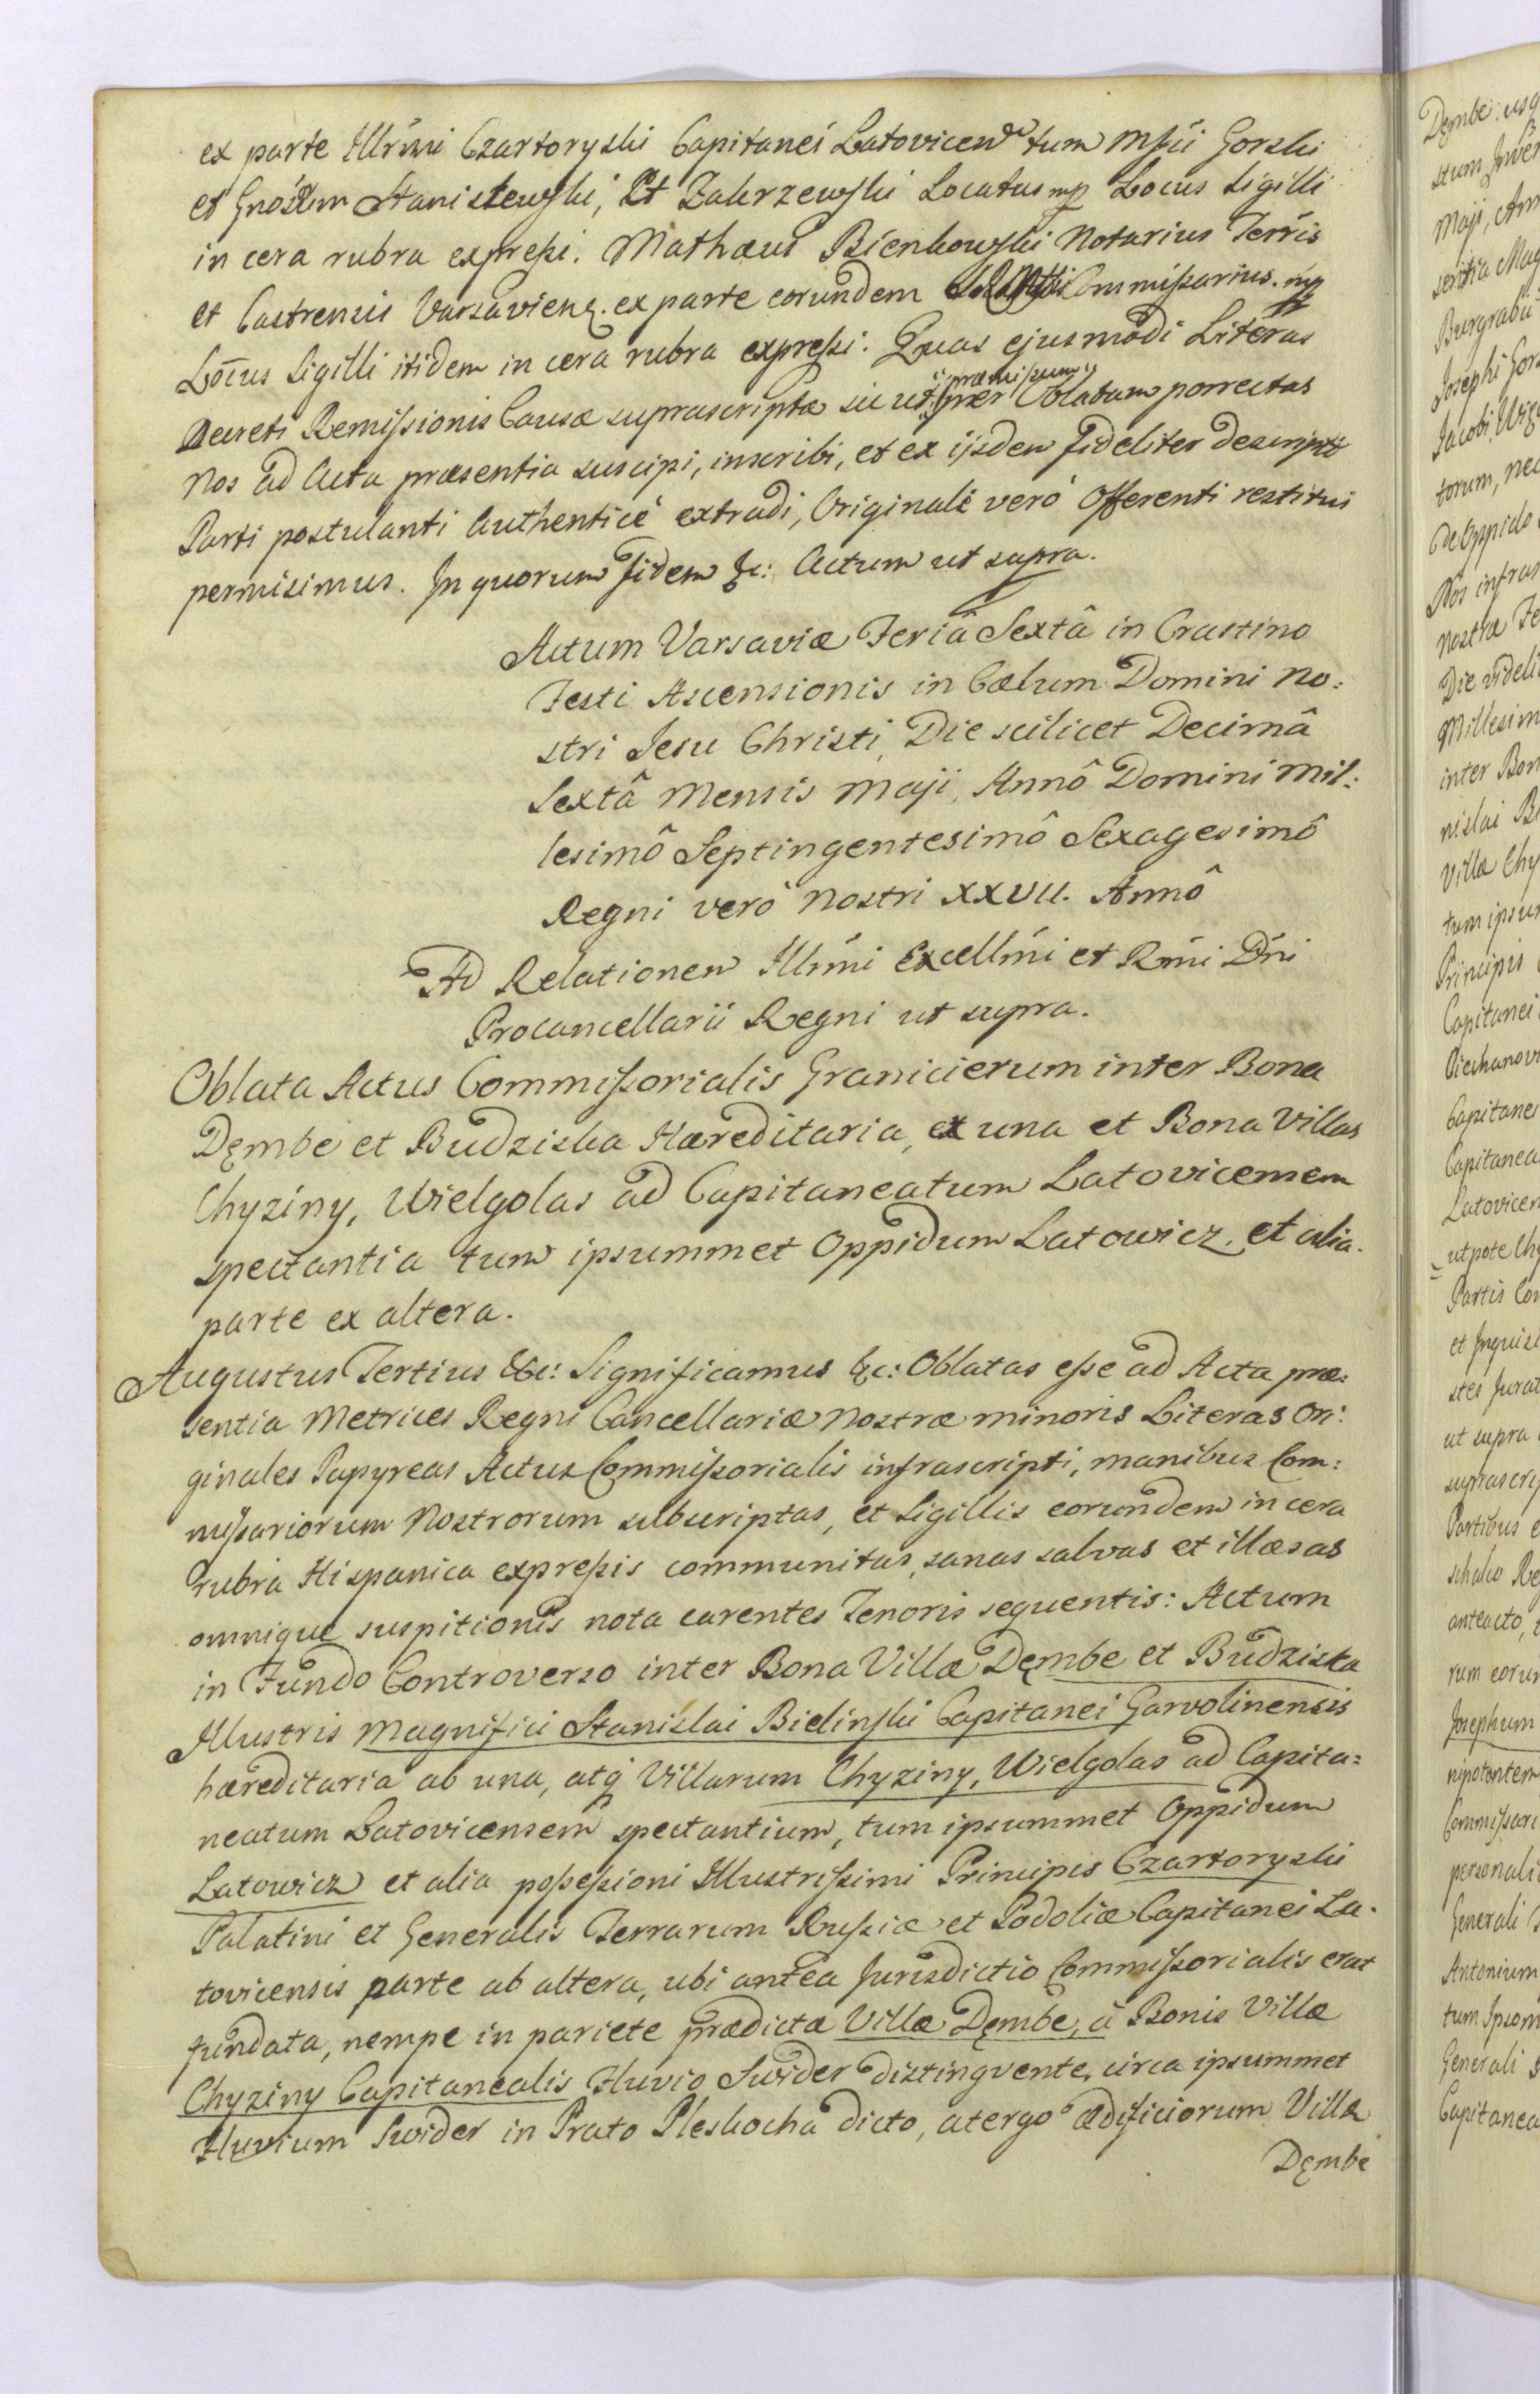 ex parte Illrmi Czartoryski Capitanei Latovicen tum Mfci Gorski
et Gnosum Staniszewski, Et Zakrzewski Locatus mp Locus Sigilli
in cera rubra expreſsi. Mathæus Bienkowski Notarius Terris
et Castrensis Varsavienẽ. ex parte eorundem Commiſsarius. mp
Locus Sigilli itidem in cera rubra expreſsi. Quas ejusmodi Literas
Decreti Remiſsionis Causæ suprascriptæ sicut præmiſsum per Oblatam porrectas
Nos ad Acta præsentia suscipi, inscribi, et ex ijsdem fideliter descripto
Parti postulanti Authenticè extradi, Originale verò Offerenti restitui
permisimus. In quorum Fidem &c: Actum ut supra.
Actum Varsaviæ Feriâ Sextâ in Crastino
Festi Ascensionis in Cælum Domini No:
stri Jesu Christi, Die scilicet Decimâ
Sextâ Mensis Maji, Annô Domini Mil:
lesimô Septingentesimô Sexagesimô
Regni verò Nostri XXVII. Annô
Ad Relationem Illrmi Excellmi et Rmi Dni
Procancellarii Regni ut supra.
Oblata Actus Commiſsorialis Granicierum inter Bona
Dęmbe et Budziska Hæreditaria, ex una et Bona Villas
Chyziny, Wielgolas ad Capitaneatum Latovicensem
spectantia tum ipsummet Oppidum Latowicz, et alia.
parte ex altera.
Augustus Tertius &c: Significamus &c: Oblatas eſse ad Acta præ:
sentia Metrices Regni Cancellariæ Nostræ minoris Literas Ori:
ginales Papyreas Actus Commiſsorialis infrascripti, manibus Com:
miſsariorum Nostrorum subscriptas, et Sigillis eorundem in cera
rubra Hispanica expreſsis communitas, sanas salvas et illæsas
omnique suspitionis nota carentes Tenoris sequentis: Actum
in Fundo Controverso inter Bona Villæ Dęmbe et Budziska
Illustris Magnifici Stanislai Bielinski Capitanei Garvolinensis
hæreditaria ab una, atq Villarum Chyziny, Wielgolas ad Capita:
neatum Latovicensem spectantium, tum ipsummet Oppidum
Latowicz et alia poſseſsioni Illustriſsimi Principis Czartoryski
Palatini et Generalis Terrarum Ruſsiæ et Podoliæ Capitanei La:
tovicensis parte ab altera, ubi antea Jurisdictio Commiſsorialis erat
fundata, nempe in pariete prædictæ Villæ Dęmbe, à Bonis Villæ
Chyziny Capitanealis Fluvio Swider distingvente, circa ipsummet
Fluvium Swider in Prato Pleskocha dicto, atergo ædificiorum Villæ
Dęmbe
Dęmbe
stum
Maji,
sentia
Josephi
Jacobi
torum,
de Oppido
Nos
Nostræ
Die
inter
nislai
Villæ
tum
Principis
Capitanei
Latovicen
utpote
Partis
ut supra
Partibus
anteacto,
Josephum
Generali
Antonium
tum
Generali